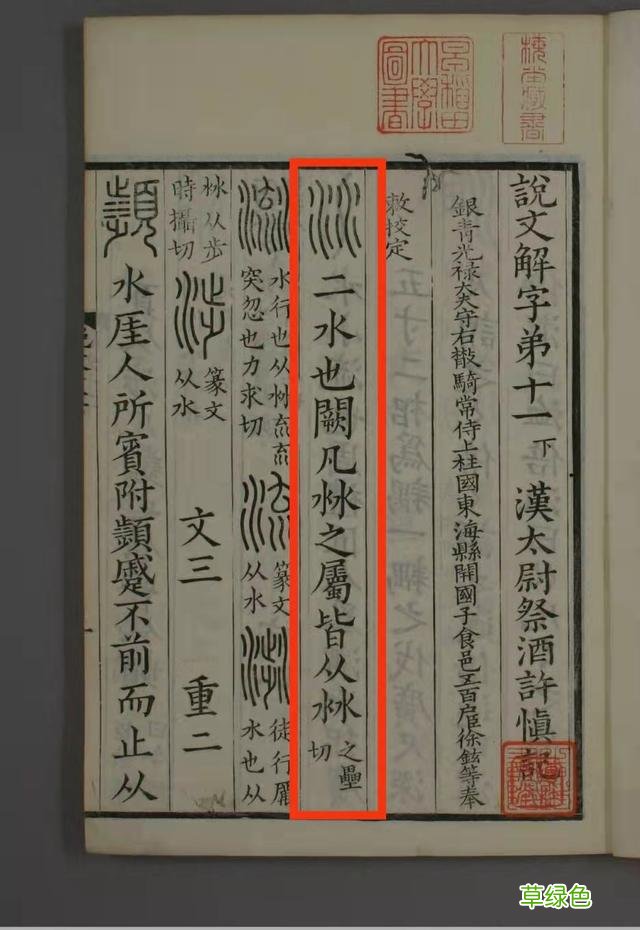 早稻田大學圖書
說文解字弟十一下 漢太尉祭酒許慎記
銀青光禄大夫守右散騎常侍上柱國東海縣開國子食邑五百戶臣徐鉉等奉
敕校定
沝 二水也闕凡沝之屬皆从沝 之壘切
𣹳 水行也从沝㐬㐬突忽也力求切 流 篆文从水 𣻣 徒行厲水也从
沝从步時攝切 涉 篆文从水 文三 重二
瀕 水厓人所賓附瀕蹙不前而止从
草绿色